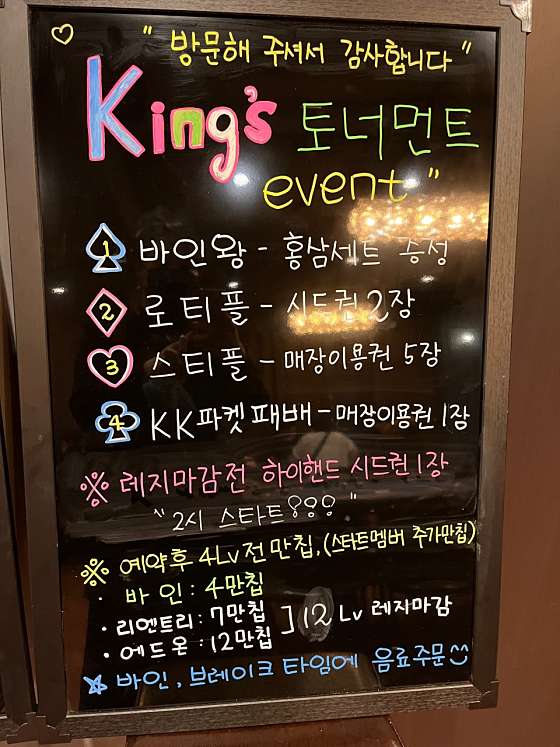 " 방문해 주셔서 감사합니다 "
King's 토너먼트
event "
1 바인왕 - 홍삼세트 증정
2 로티플 - 시드권 2장
3 스티플 - 매장이용권 5장
4 KK파켓패배 - 매장이용권 1장
※ 레지마감전 하이핸드 시드권 1장
" 2시 스타트 "
※ 예약후 4Lv전 만칩.(스타트멤버 추가만칩)
· 바인 : 4만칩
· 리엔트리 : 7만칩
· 에드온 : 12만칩 ] 12 Lv 레지마감
☆ 바인, 브레이크 타임에 음료주문